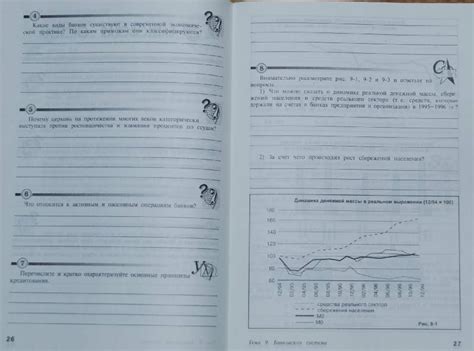 4
Какие виды банков существуют в современной экономиче-
ской практике? По каким признакам они классифицируются?
5
Почему церковь на протяжении многих веков категорически
выступала против ростовщичества и взимания процентов по ссуде?
6
Что относится к активным и пассивным операциям банков?
7
Перечислите и кратко охарактеризуйте основные принципы
кредитования.
26
8
Внимательно рассмотрите рис. 9-1, 9-2 и 9-3 и ответьте на
вопросы.
1) Что можно сказать о динамике реальной денежной массы, сбере-
жений населения и средств реального сектора (т.е. средств, которые
держали на счетах в банках предприятия и организации) в 1995–1996 гг.?
2) За счет чего происходил рост сбережений населения?
Динамика денежной массы в реальном выражении (12/94 = 100)
180
160
140
120
100
80
60
40
20
0
12/94 02/95 04/95 06/95 08/95 10/95 12/95 02/96 04/96 06/96 08/96 10/96 12/96
средства реального сектора
сбережения населения
М2
М0
Рис. 9-1
Тема 9. Банковская система
27